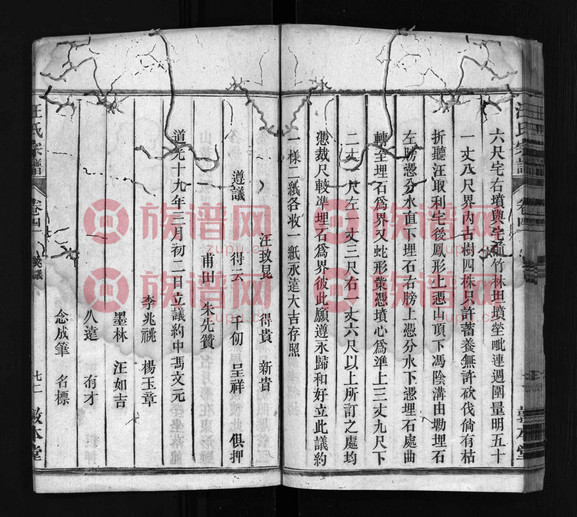 六尺宅右墳與宅前竹林坦墳坐毗連週圍量明五十
一丈八尺界內古樹四株只許蓄養無許砍伐倘有枯
折聽汪取利宅後鳳形上憑山頂下馮陰溝由墈埋石
左塝憑分水直下埋石右塝上憑分水下憑埋石處曲
轉全埋石為界又蛇形葉憑墳心為準上三丈九尺下
二丈一尺左一丈三尺右一丈六尺以上所訂之處均
憑裁尺較準埋石為界彼此願遵永歸和好立此議約
一樣二紙各收一紙永遠大吉存照
汪玟昆 得貴 新貴
遵議 得云 千仞 呈祥 俱押
甫田 朱先贊
道光十九年三月初二日立議約中馮文元
李兆祧 楊玉章
墨林 汪如吉
八達 有才
念成筆 名標
汪氏宗譜 卷四 七二 敦本堂
汪氏宗譜 卷四 敦本堂
族谱网
zupu.cn